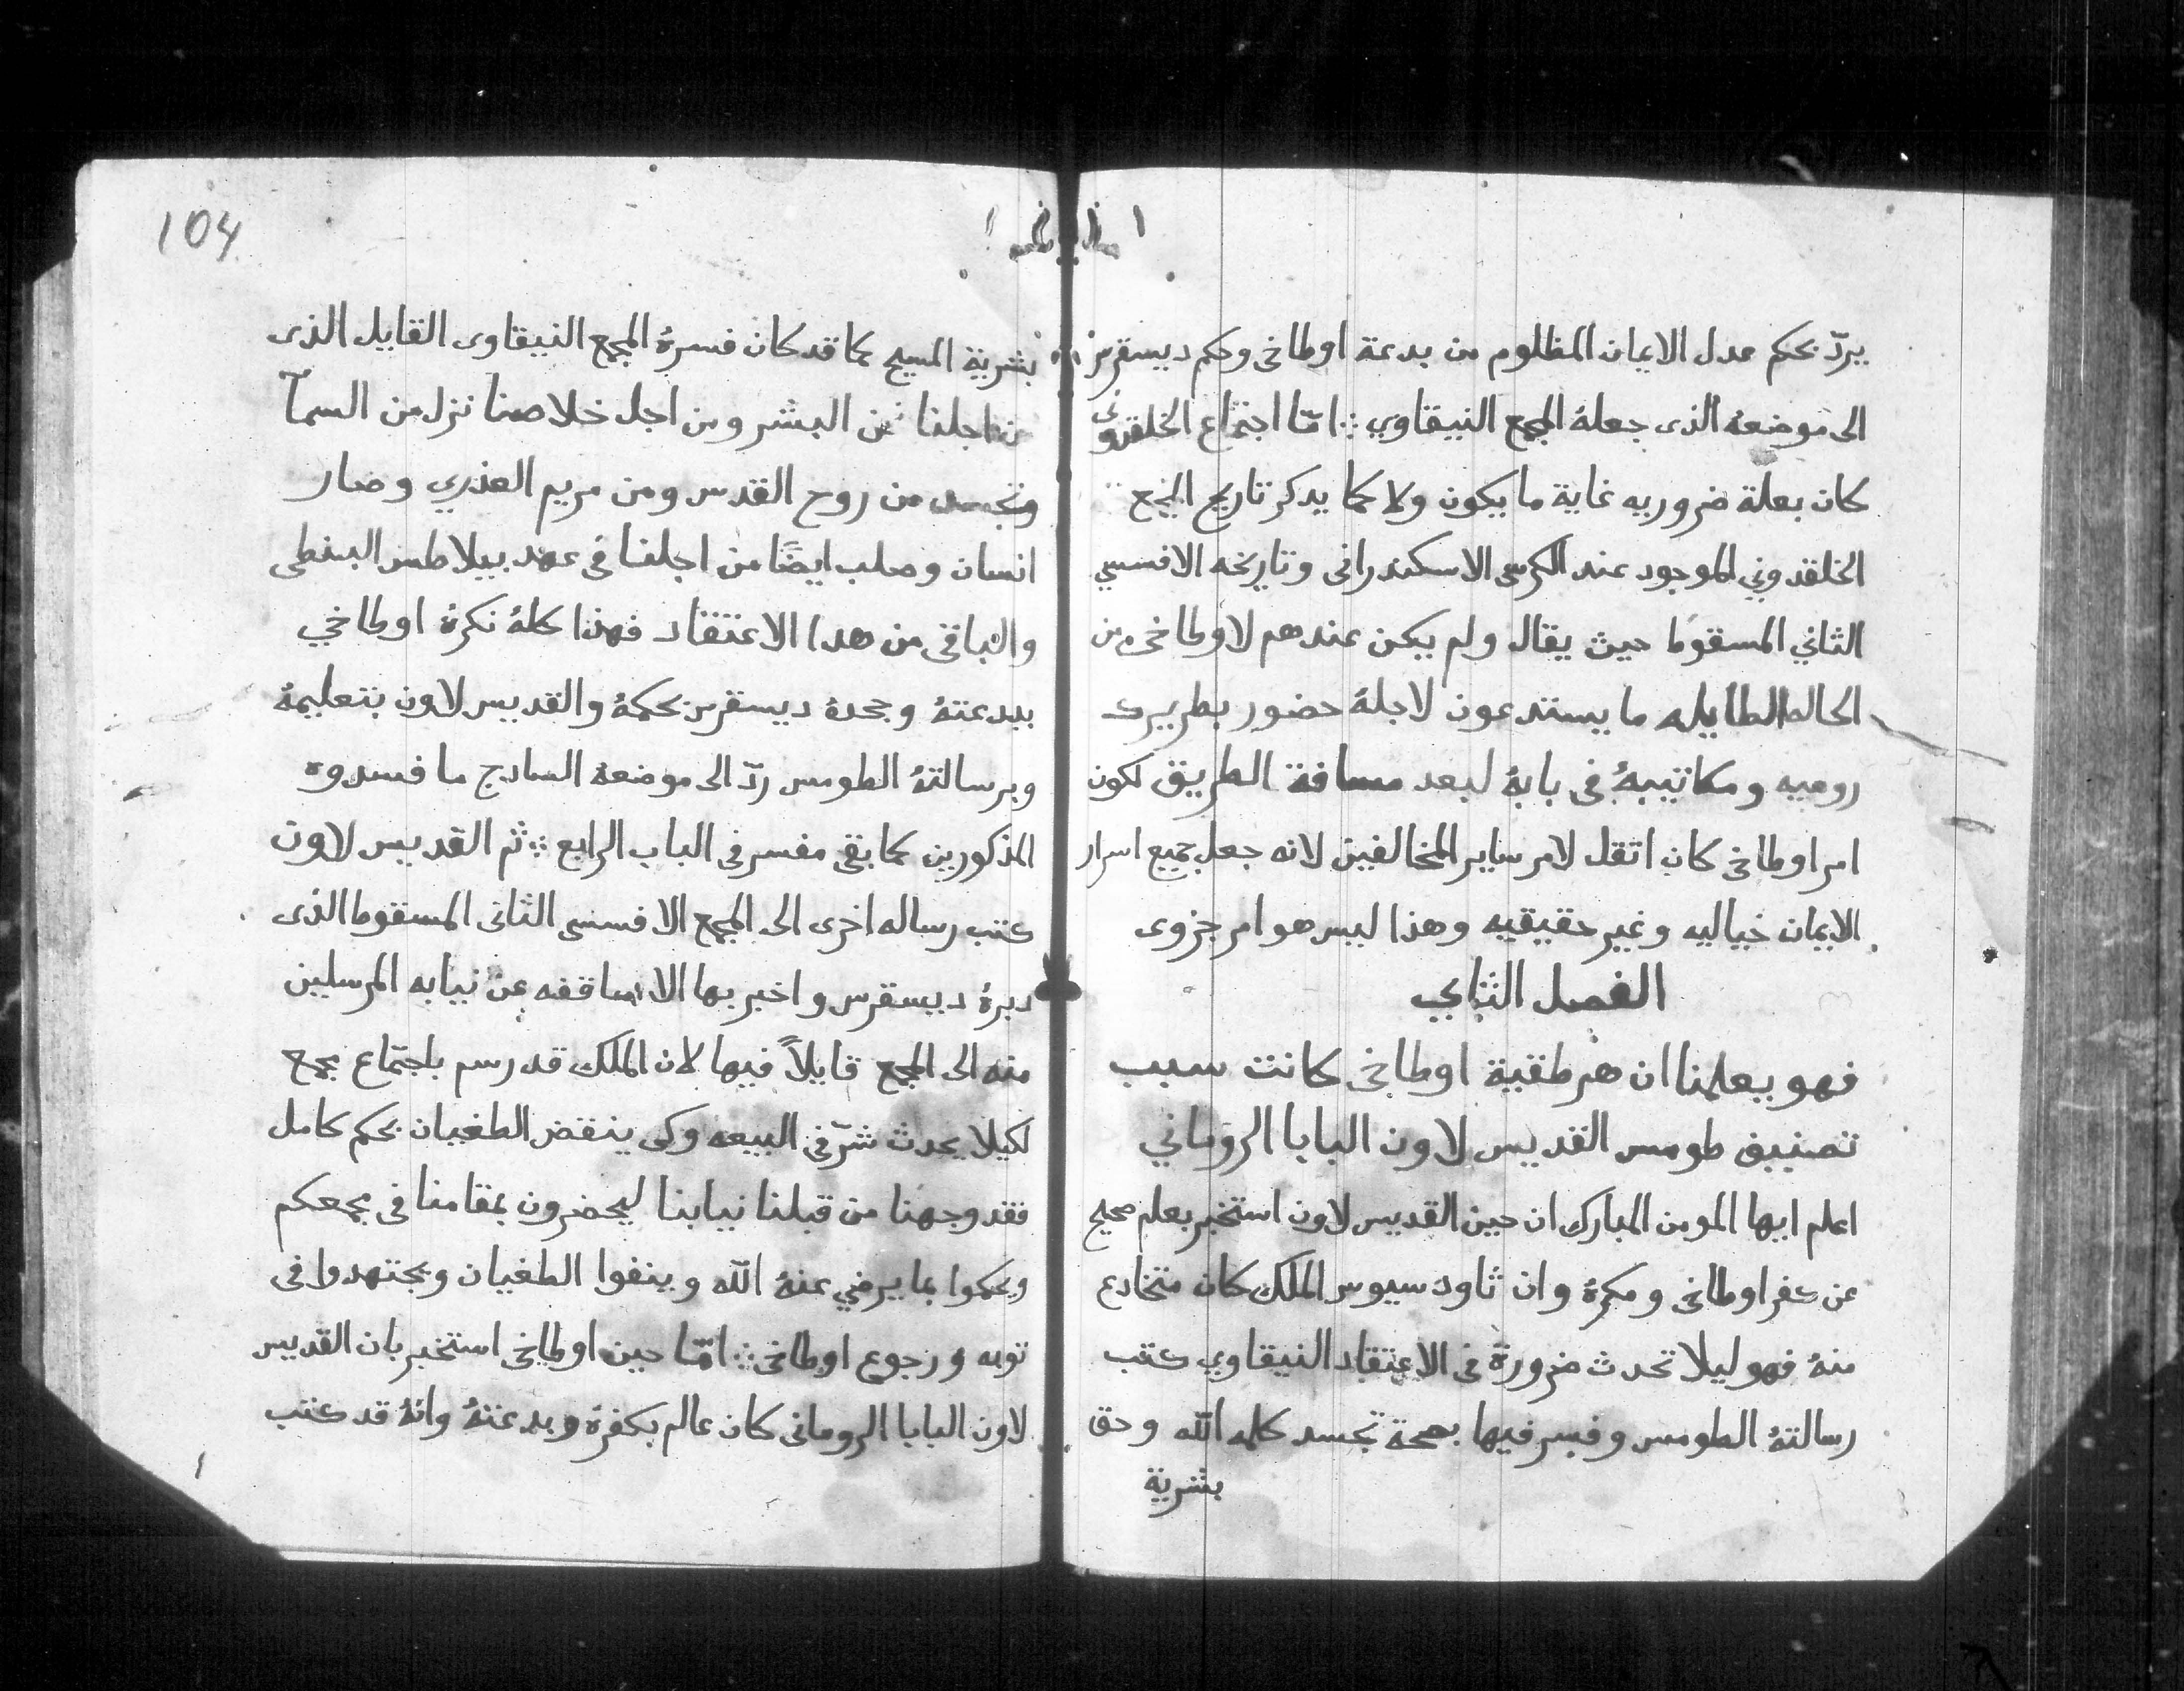 يردّ بحكم عدل الايمان المظلوم من بدعة اوطاخى وحكم ديسقرس
الى موضعهُ الذى جعلهُ المجمع النيقاوي ⁘ امّا اجتماع الخلقدونى
كان بعلة ضروريه غاية ما يكون ولا كما يدكر تاريخ المجمع
الخلقدوني الموجود عند الكرسى الاسكندرانى وتاريخه الافسسي
الثاني المسقوط حيث يقال ولم يكن عندهم لاوطاخى من
الحاله الطايله ما يستدعون لاجلهُ حضور بطريرك
روميه ومكاتيبهُ فى بابهُ لبعد مسافة الطريق لكون
امر اوطاخى كان اتقل لامر ساير المخالفين لانه جعل جميع اسرار
الايمان خياليه وغير حقيقيه وهذا ليس هو امر جزوى
الفصل الثاني
فهو يعلمنا ان هرطقية اوطاخى كانت سبب
تصنيف طومس القديس لاون البابا الروماني
اعلم ايها المومن المبارك ان حين القديس لاون استخبر بعلم صحيح
عن كفر اوطاخى ومكرهُ وان ثاودسيوس الملك كان متخادع
منهُ فهو ليلا تحدث ضرورة فى الاعتقاد النيقاوي كتب
رسالتهُ الطومس وفسر فيها بصحة تجسد كلمه الله وحق
بشرية
104
بشرية المسيح كما قد كان فسرهُ المجمع النيقاوى القايل الذى
من اجلنا نحن البشر ومن اجل خلاصنا نزل من السمآ
وتجسد من روح القدس ومن مريم العذري وصار
انسان وصلب ايضًا من اجلنا فى عهد بيلاطس البنطى
والباقى من هدا الاعتقاد فهذا كلهُ نكرهُ اوطاخي
ببدعتهُ وجحدهُ ديسقرس بحكمهُ والقديس لاون بتعليمهُ
وبرسالتهُ الطومس ردّ الى موضعهُ السادج ما فسدوه
المذكورين كما بقى مفسر فى الباب الرابع ⁘ ثم القديس لاون
كتب رساله اخرى الى المجمع الافسسى الثانى المسقوط الذى
دبرهُ ديسقرس واخبر بها الاساقفه عن نيابه المرسلين
منه الى المجمع قايلاً فيها لان الملك قد رسم باجتماع مجمع
لكيلا يحدث شرّ فى البيعه وكى ينقض الطغيان بحكم كامل
فقد وجهنا من قبلنا نيابنا ليحضرون بمقامنا فى مجمعكم
ويحكموا بما يرضي عنهُ الله وينفوا الطغيان ويجتهدوا فى
توبه ورجوع اوطاخى ⁘ امّا حين اوطاخى استخبر بان القديس
لاون البابا الرومانى كان عالم بكفرهُ وبدعتهُ وانهُ قد كتب